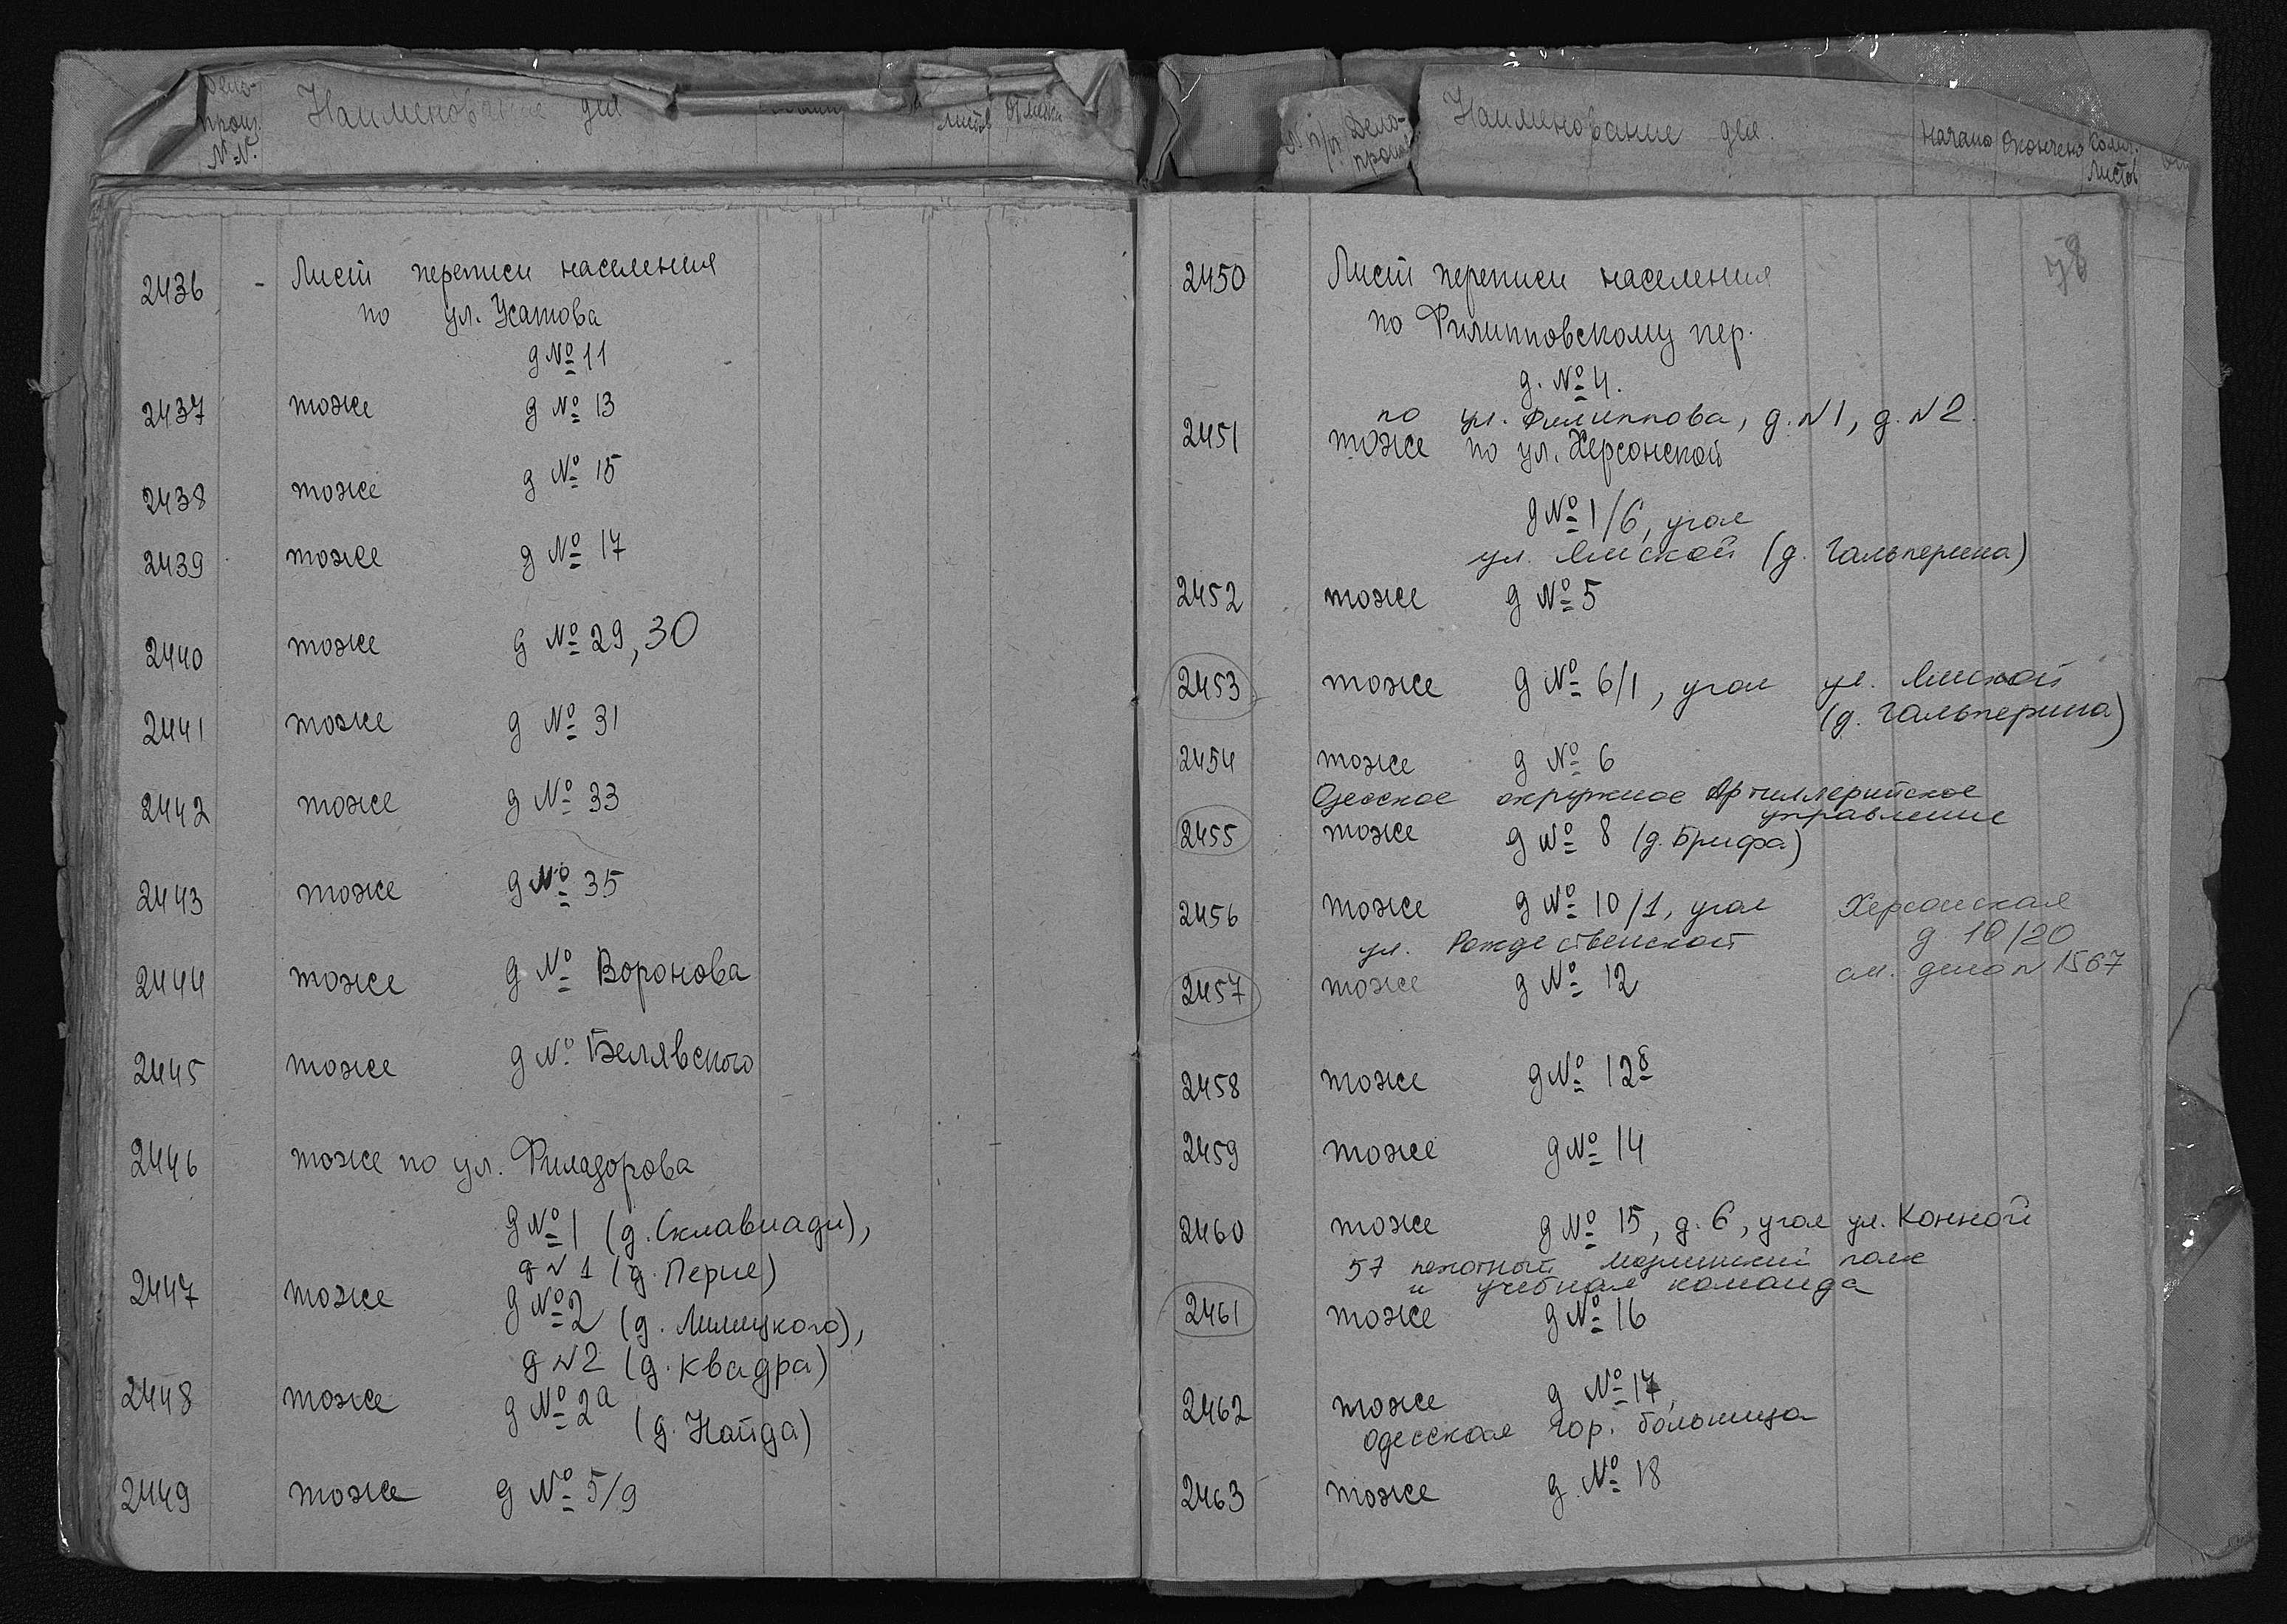 Дело-
произ.
№№.
Наименование дел
листов
Отметка
2436 - Лист переписи населения
по ул. Усатова
д № 11
2437 тоже д № 13
2438 тоже д № 15
2439 тоже д № 17
2440 тоже д № 29, 30
2441 тоже д № 31
2442 тоже д № 33
2443 тоже д № 35
2444 тоже д № Воронова
2445 тоже д № Белявского
2446 тоже по ул. Филадорова
д № 1 (д. Склавиади),
д N 1 (д. Перие)
2447 тоже д № 2 (д. Милецкого),
д N 2 (д. Квадра)
2448 тоже д № 2а (д. Найда)
2449 тоже д № 5/9
№ п/п
Дело-
произ
Наименование дел.
Начато
Окончено
Колич.
Листов
78
2450 Лист переписи населения
по Филипповскому пер.
д. № 4.
по ул. Филиппова, д. N 1, д. N 2.
2451 тоже по ул. Херсонской
д № 1/6, угол
ул. Ямской (д. Гальперина)
2452 тоже д № 5
2453 тоже д № 6/1, угол ул. Ямской
(д. Гальперина)
2454 тоже д № 6
Одесское окружное Артиллерийское
управление
2455 тоже д № 8 (д. Брифа)
2456 тоже д № 10/1, угол
ул. Рождественской
Херсонская
д 10/20
см. дело N 1567
2457 тоже д № 12
2458 тоже д № 12б
2459 тоже д № 14
2460 тоже д № 15, д. 6, угол ул. Конной
57 пехотный Модлинский полк
и учебная команда
2461 тоже д № 16
2462 тоже д № 17,
Одесская гор. больница
2463 тоже д № 18